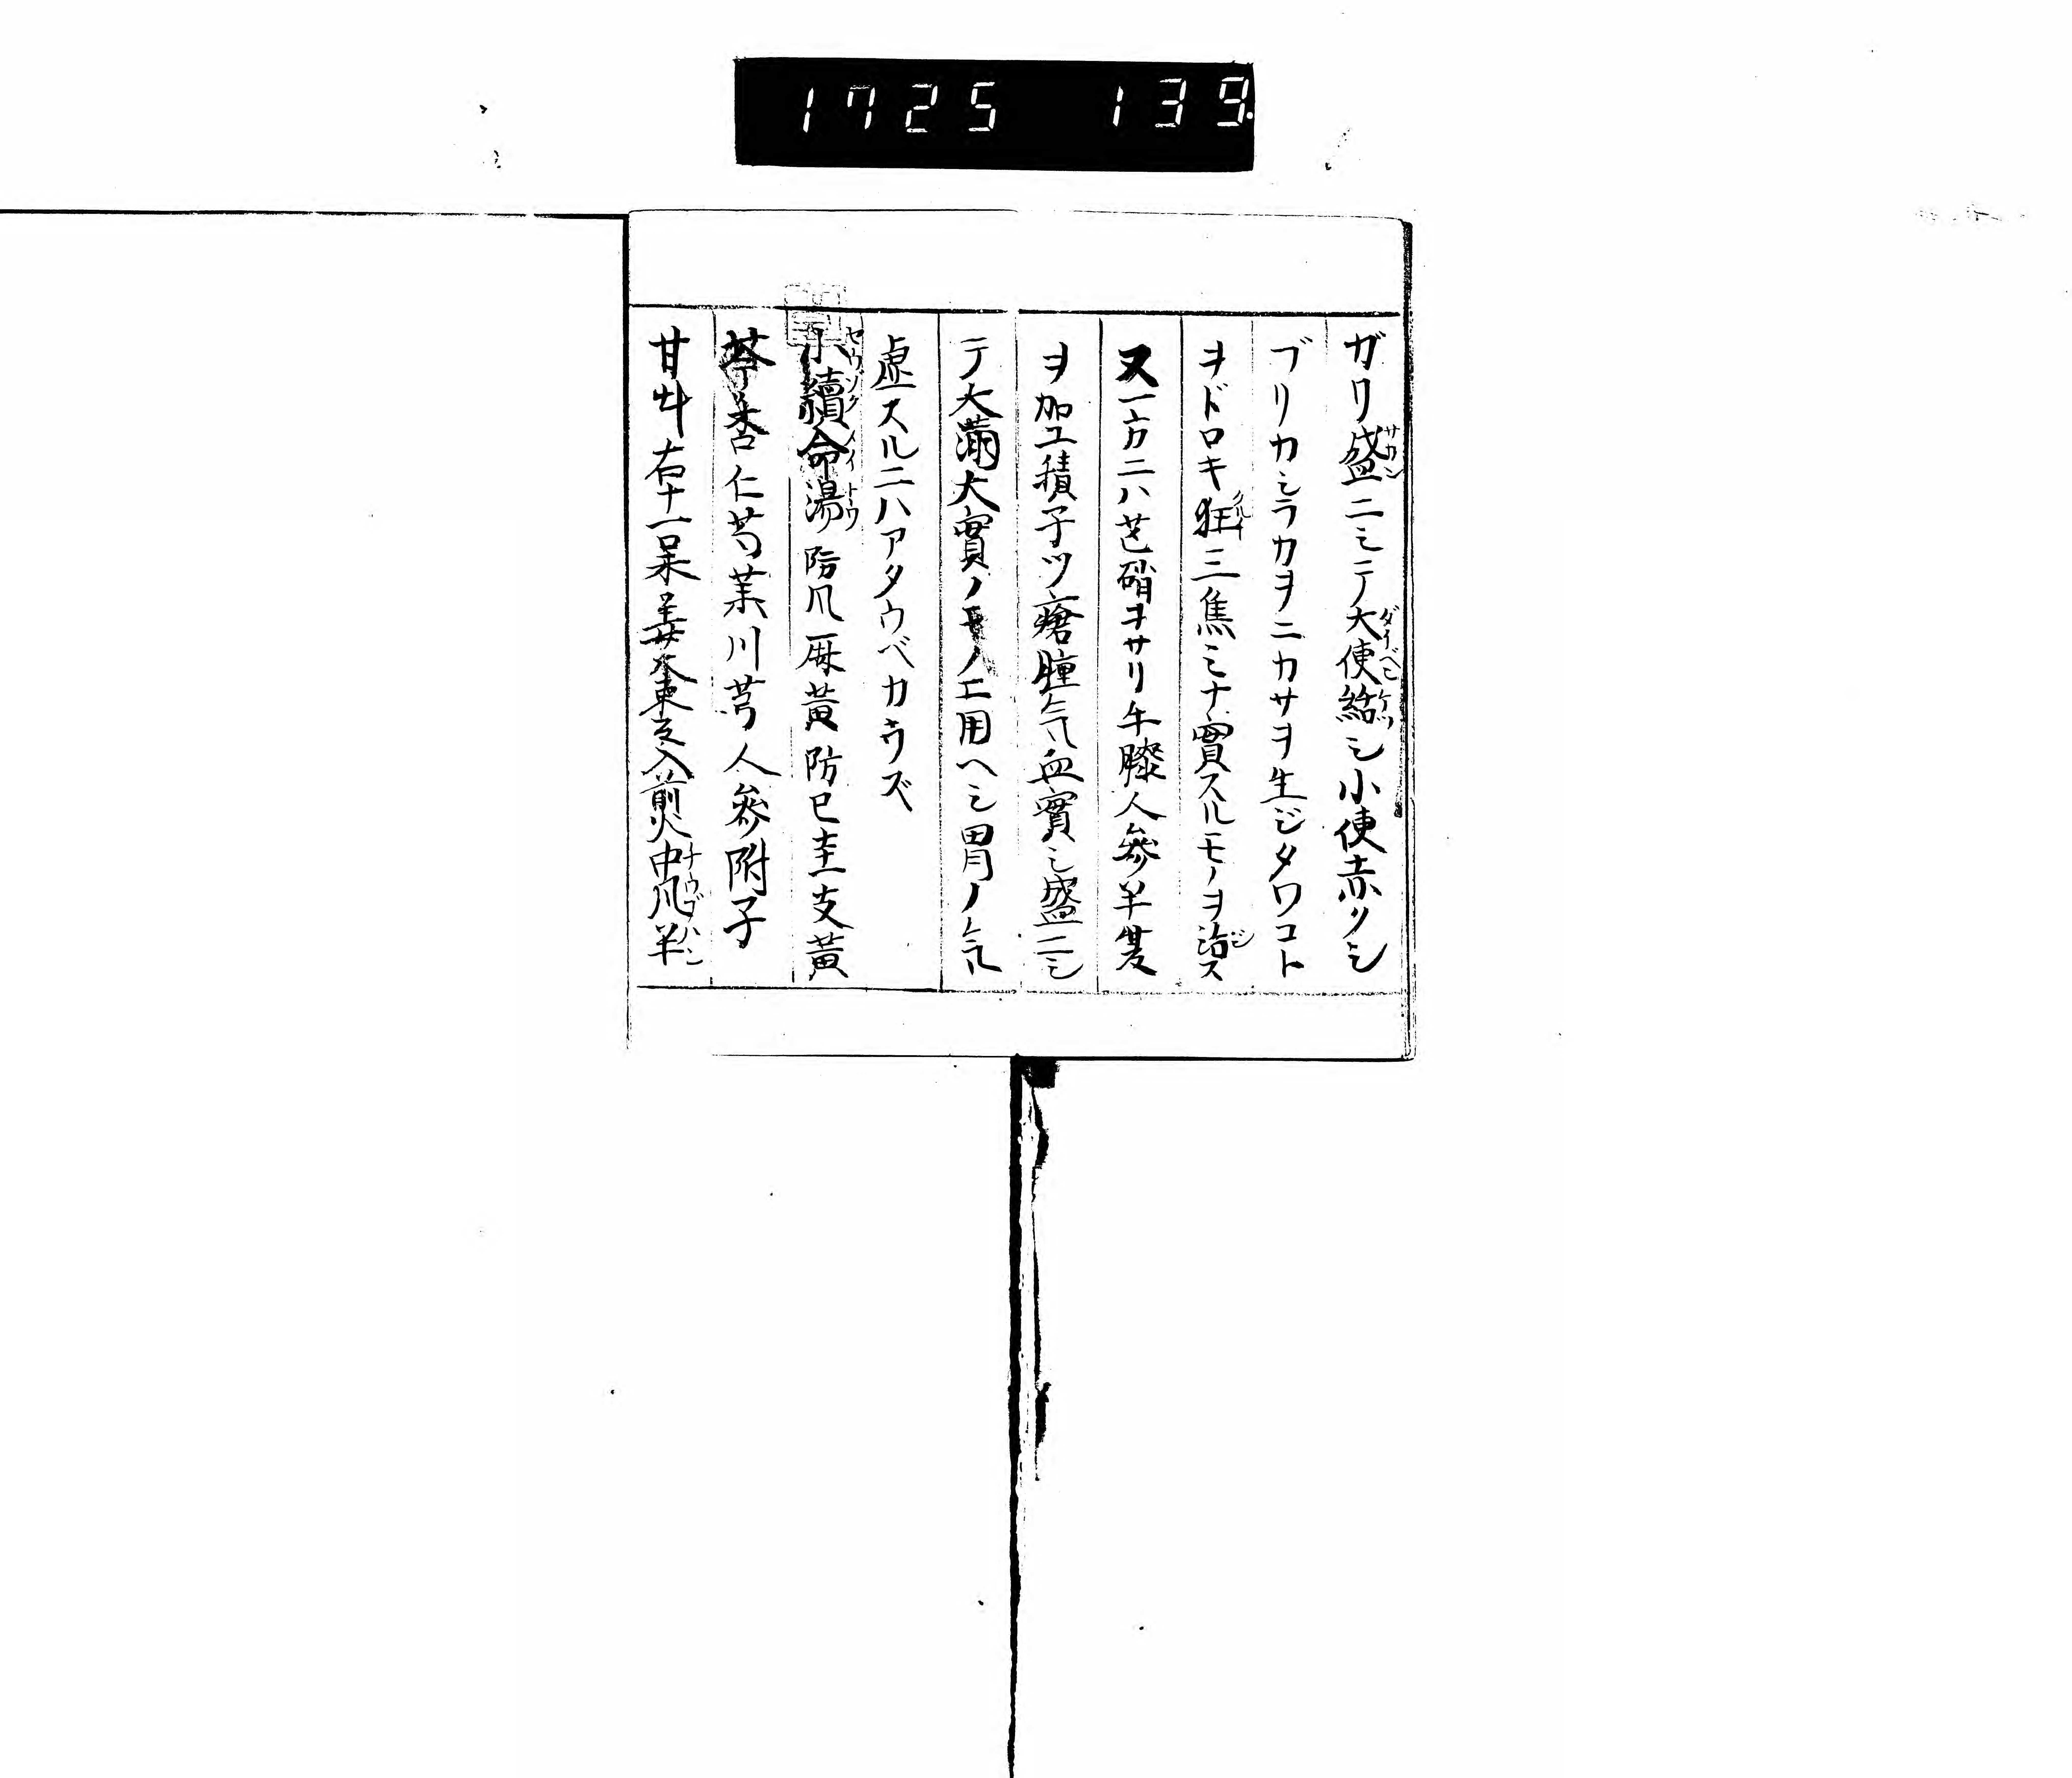 1725 139.
ガリ盛ニシテ大便結シ小便赤クシ
ブリカシラカヲニカサヲ生ジタワコト
ヲドロキ狂三焦ミナ實スルモノヲ治ス
又一方ニハ芒硝ヲサリ牛膝人參半夏
ヲ加エ積子ツ瘡腫気血實シ盛ニシ
テ大満大實ノモノエ用ヘシ胃ノ気
虚スルニハアタウベカラズ
小續命湯防風麻黄防已圭支黄
芩杏仁芍薬川芎人參附子
甘艸右十一味姜棗入煎中風半